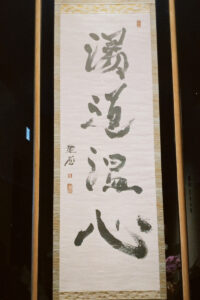 湯道温心